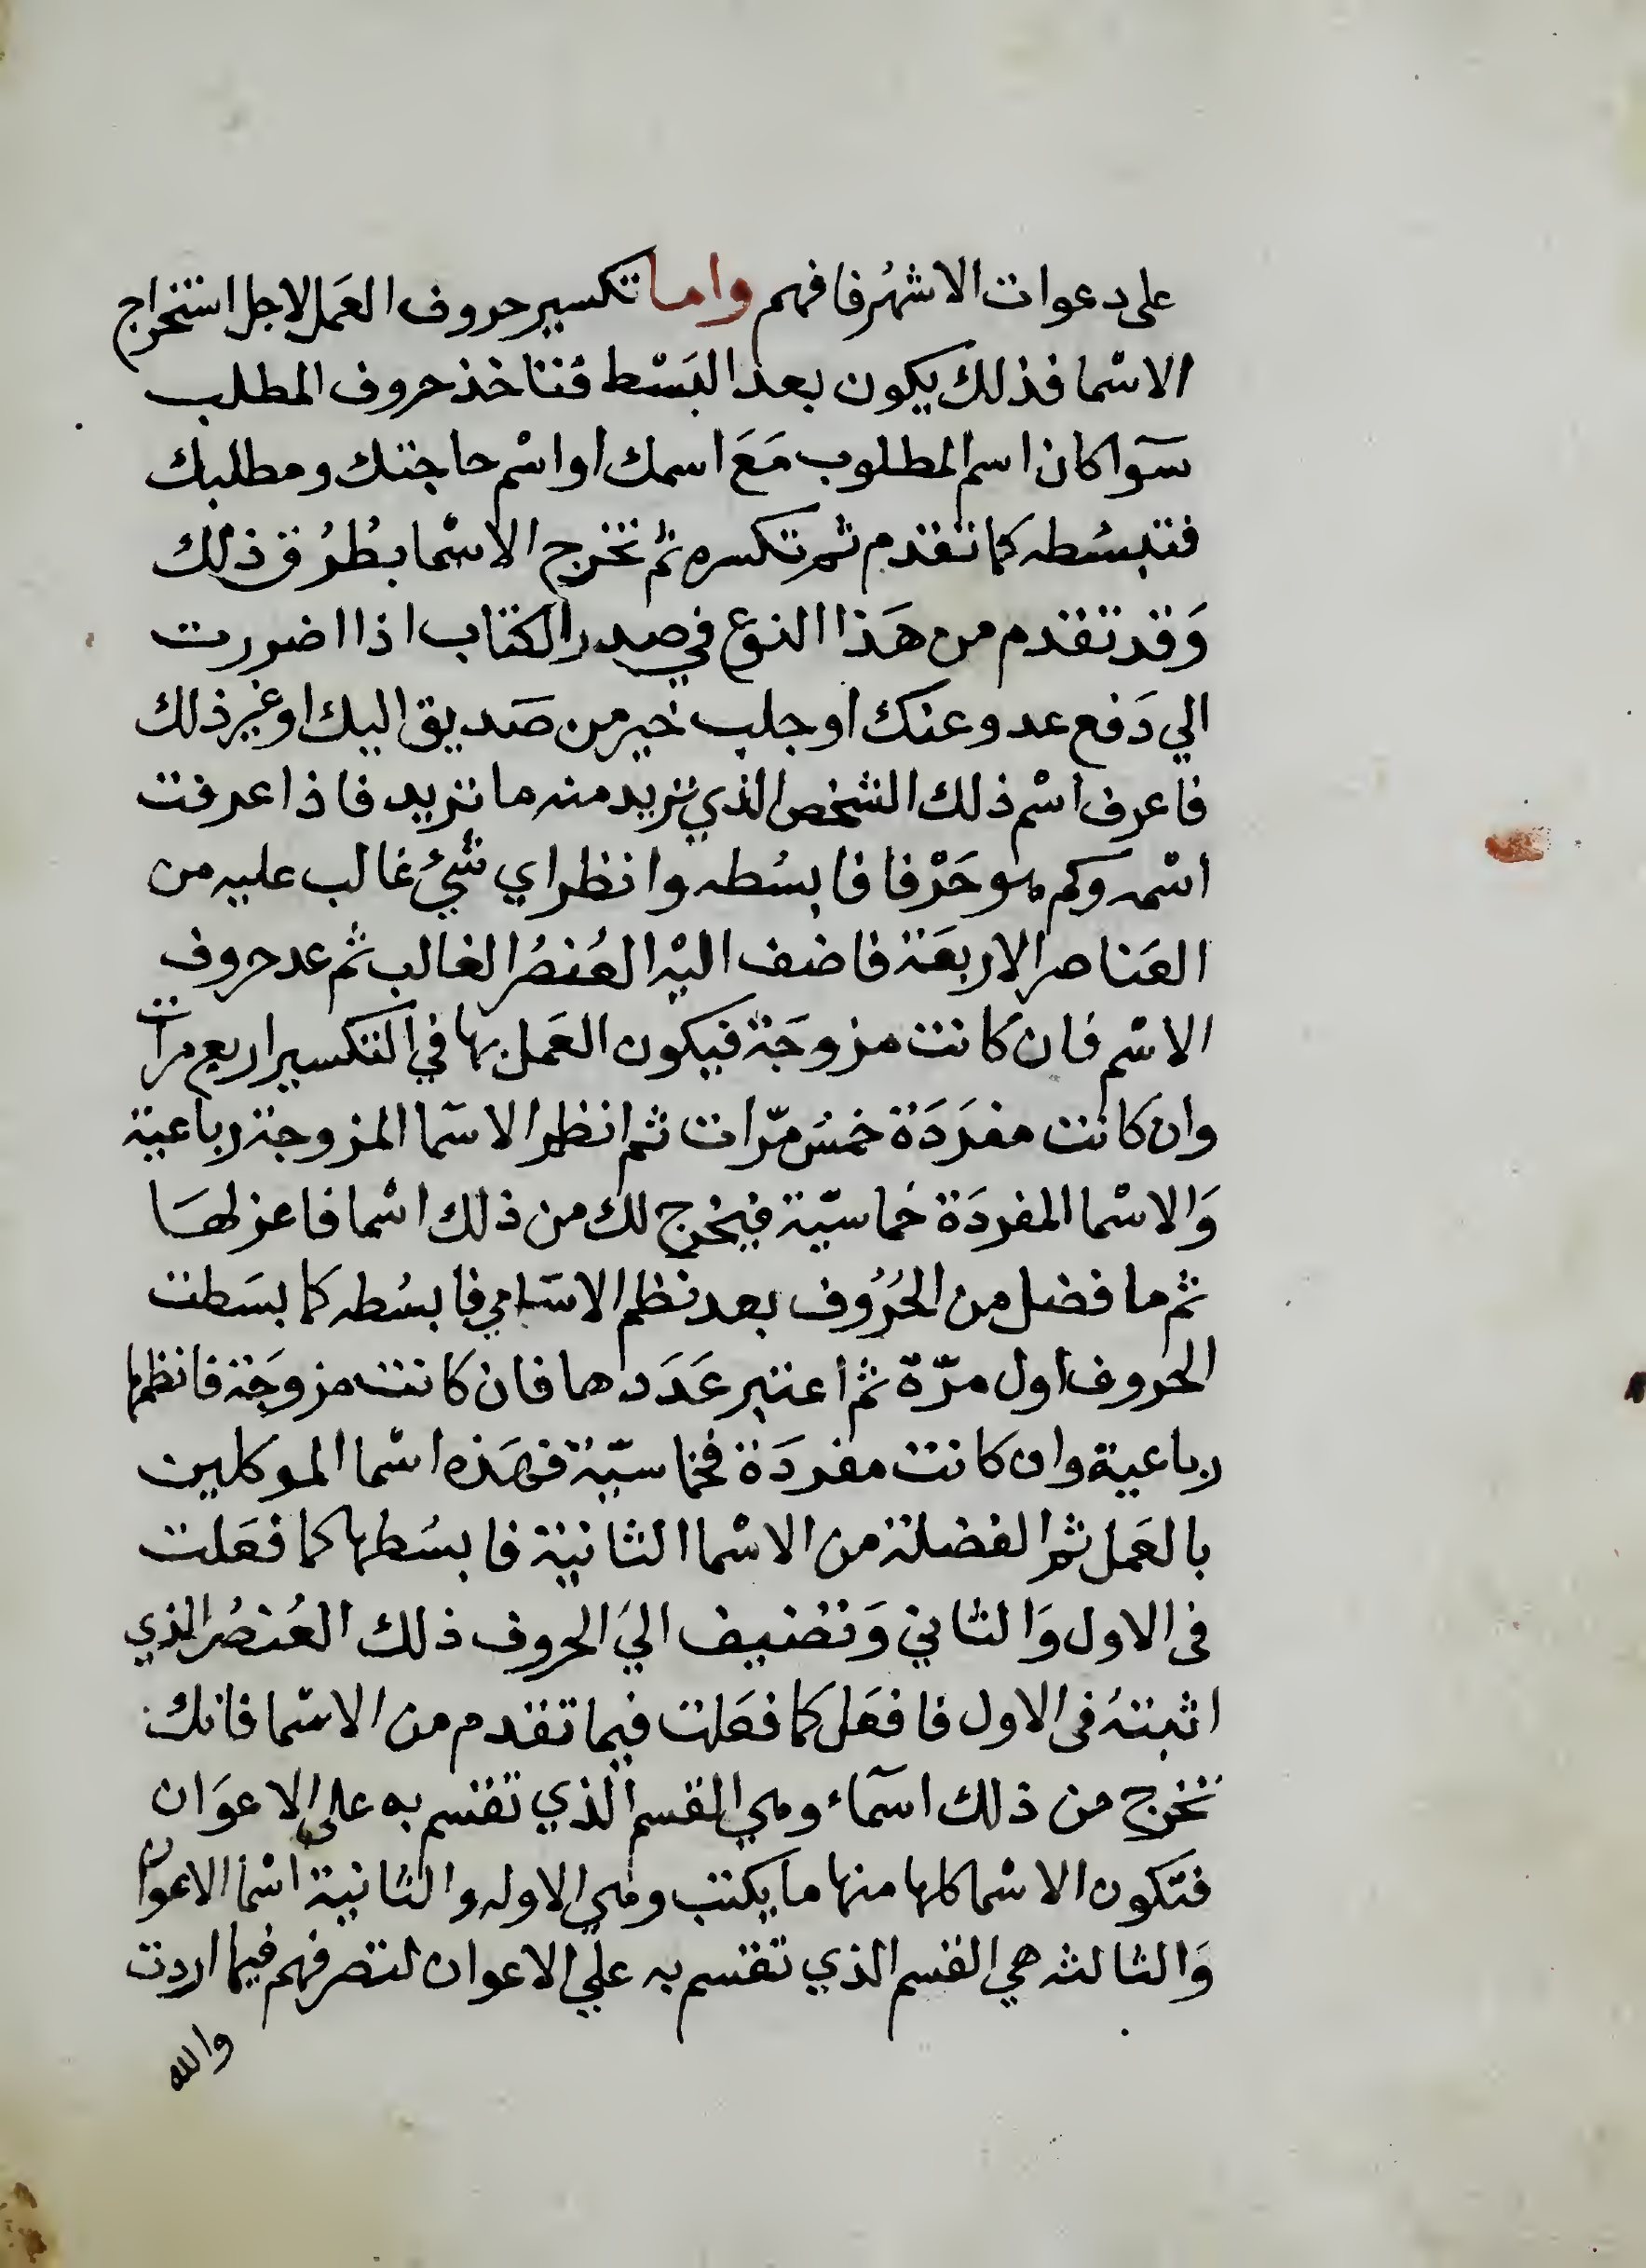 على دعوات الاشهُر فافهم واما تكسير حروف العَمل لاجل استخراج
الاسْما فذلك يكون بعد البَسْط فتاخذ حروف المطلب
سَوا كان اسم المطلوب مَعَ اسمك او اسْم حاجتك ومطلبك
فتبسُطه كما تقدم ثم تكسره ثم تخرج الاسْما بطُرُق ذلك
وَقد تقدم من هَذا النوع في صدر الكتاب اذا اضورت
الي دَفع عدو عنك او جلب خير من صَديق اليك او غير ذلك
فاعرف اسْم ذلك الشخص الذي تريد منه ما تريد فاذا عرفت
اسْمه وكم هو حَرْفا فابسُطه وانظر اي شيُ غالب عليه من
العَناصر الاربعَة فاضف اليْه العُنصُر الغالب ثم عد حروف
الاسْم فان كانت مزوجَة فيكون العَمل بها في التكسير اربع مرات
وان كانت مفرَدَة خمسُ مرّات ثم انظر الاسَما المزوجة رباعية
وَالاسْما المفردَة خماسيّة فيخرج لك من ذلك اسْما فاعزلهَا
ثم ما فضل من الحُرُوف بعد نظم الاسَامي فابسُطه كما بسَطت
الحروف اول مرّة ثم اعتبر عَدَدها فان كانت مزوجَة فانظمها
رباعية وان كانت مفردَة فخماسيّة فهَذه اسْما الموكلين
بالعَمل ثم الفضلة من الاسْما الثانية فابسُطها كما فعَلت
فى الاول وَالثاني وَتضيف اليَ الحروف ذلك العُنصُر الذي
اثبتهُ فى الاول فافعَل كما فعَلت فيما تقدم من الاسْما فانك
تخرج من ذلك اسَماء وهي القسم الذي تقسم به على الاعوَان
فتَكون الاسْما كلها منها ما يكتب وهي الاوله والثانية اسْما الاعوان
وَالثالثه هي القسم الذي تقسم به علي الاعوان لتصرفهم فيما اردت
والله